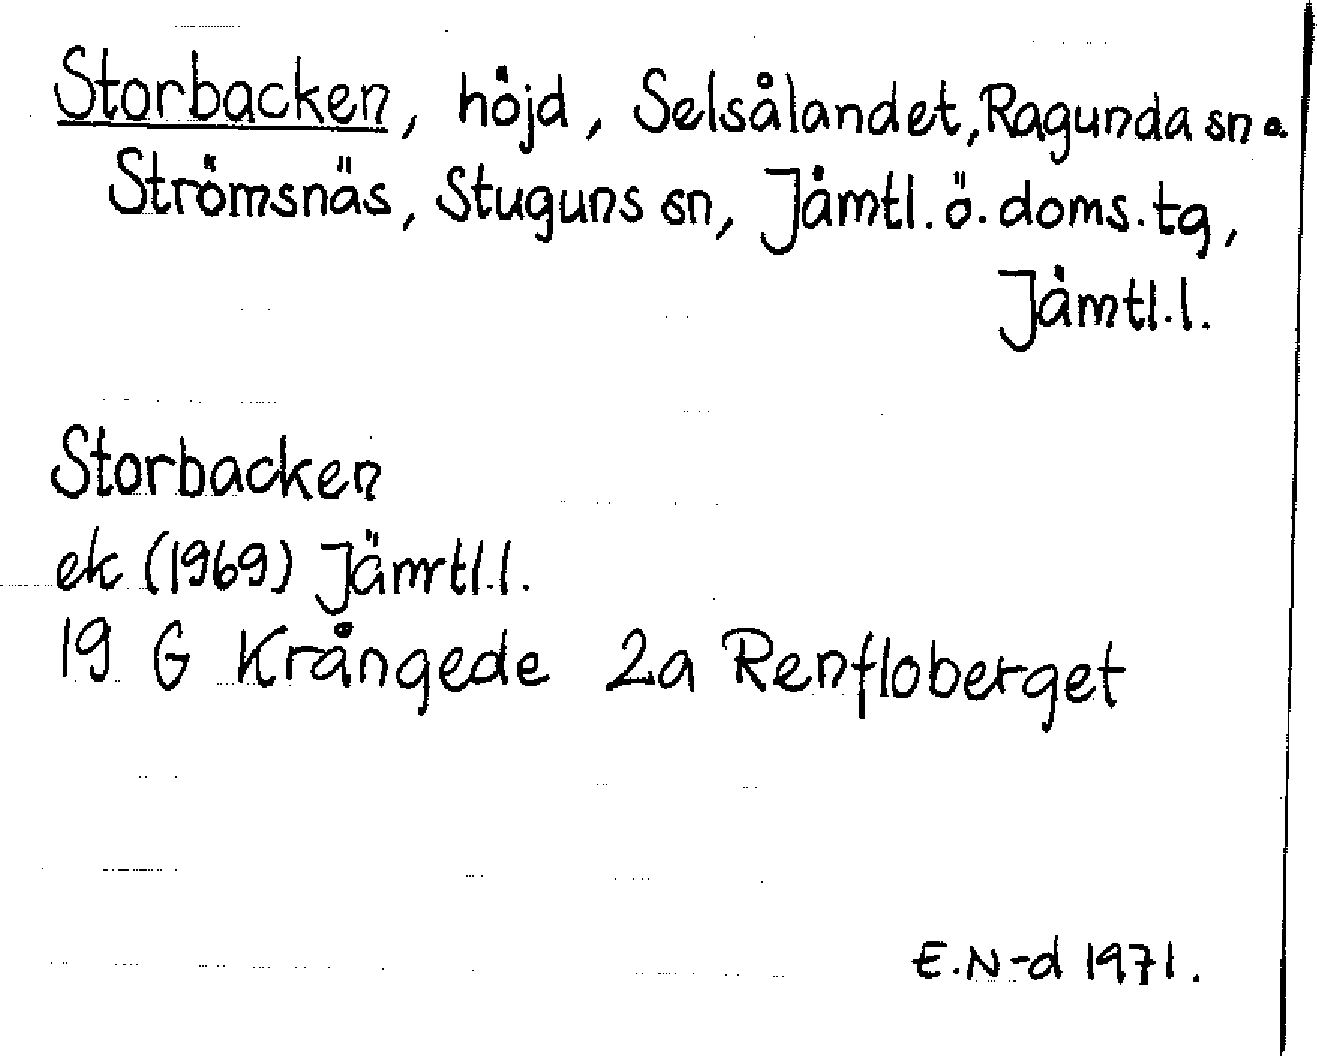 Storbacken, höjd, Selsålandet, Ragunda sn o
Strömsnäs, Stuguns sn, Jämtl. ö. doms. tg,
Jämtl. l.
Storbacken
ek (1969) Jämtl. l.
19 G Krångede 2a Renfloberget
E. N-d 1971.